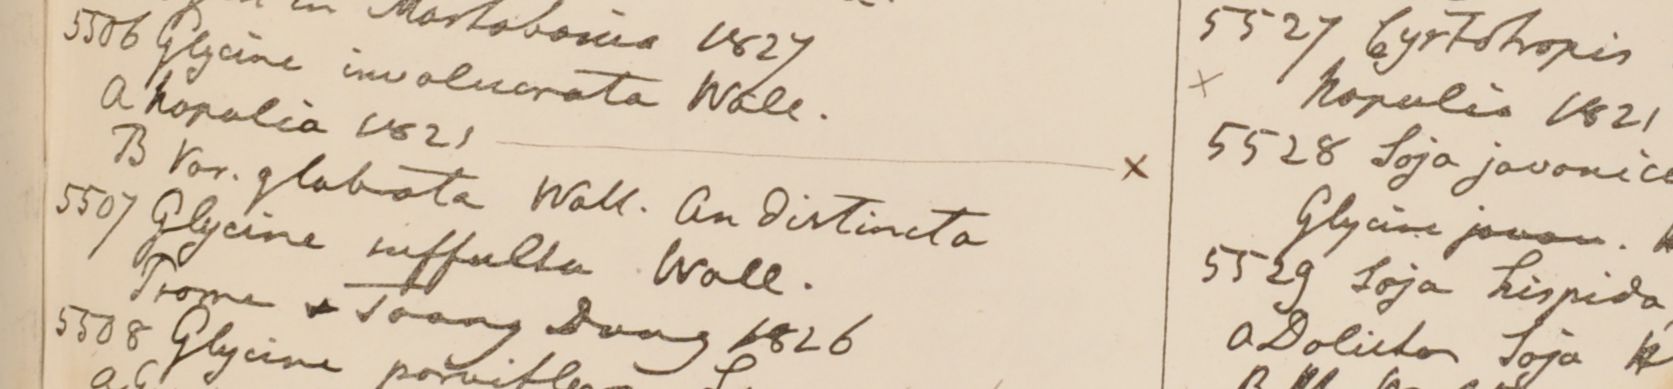 in Martabania 1827
5506 Glycine involucrata Wall.
a Napalia 1821 x
B Var. glabrata Wall. An distincta
5507 Glycine suffulta Wall.
Prome & Taong Dong 1826
5508 Glycine parviflora
5527 Cyrtotropis
x Napalia 1821
5528 Soja javanica
Glycine javan.
5529 Soja hispida
a Dolichos Soja
B